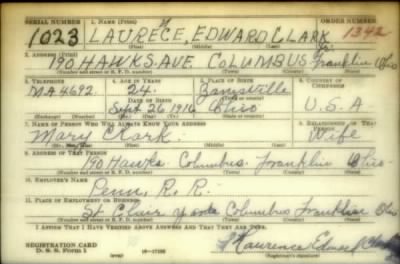 SERIAL NUMBER 1. NAME (Print) ORDER NUMBER
1023 LAURECE, EDWARD CLARK 1342
N Jr.
(First) (Middle) (Last)
2. ADDRESS (Print)
190 HAWKS. AVE. COLUMBUS. Franklin Ohio
(Number and street or R. F. D. number) (Town) (County) (State)
3. TELEPHONE 4. AGE IN YEARS 5. PLACE OF BIRTH 6. COUNTRY OF CITIZENSHIP
MA 4692 24. Zanesville
DATE OF BIRTH (Town or county)
Sept 26 1916 Ohio U.S.A
(Exchange) (Number) (Mo.) (Day) (Yr.) (State or country)
7. NAME OF PERSON WHO WILL ALWAYS KNOW YOUR ADDRESS 8. RELATIONSHIP OF THAT PERSON
Mary Clark. Wife
(Mr., Mrs., Miss) (First) (Middle) (Last)
9. ADDRESS OF THAT PERSON
190 Hawks. Columbus. Franklin Ohio.
(Number and street or R. F. D. number) (Town) (County) (State)
10. EMPLOYER'S NAME
Penn. R. R.
11. PLACE OF EMPLOYMENT OR BUSINESS
St. Clair yards Columbus Franklin Ohio
(Number and street or R. F. D. number) (Town) (County) (State)
I AFFIRM THAT I HAVE VERIFIED ABOVE ANSWERS AND THAT THEY ARE TRUE.
REGISTRATION CARD
D. S. S. Form 1 (over) 16-17105 Laurence Edward Clark
(Registrant's signature)